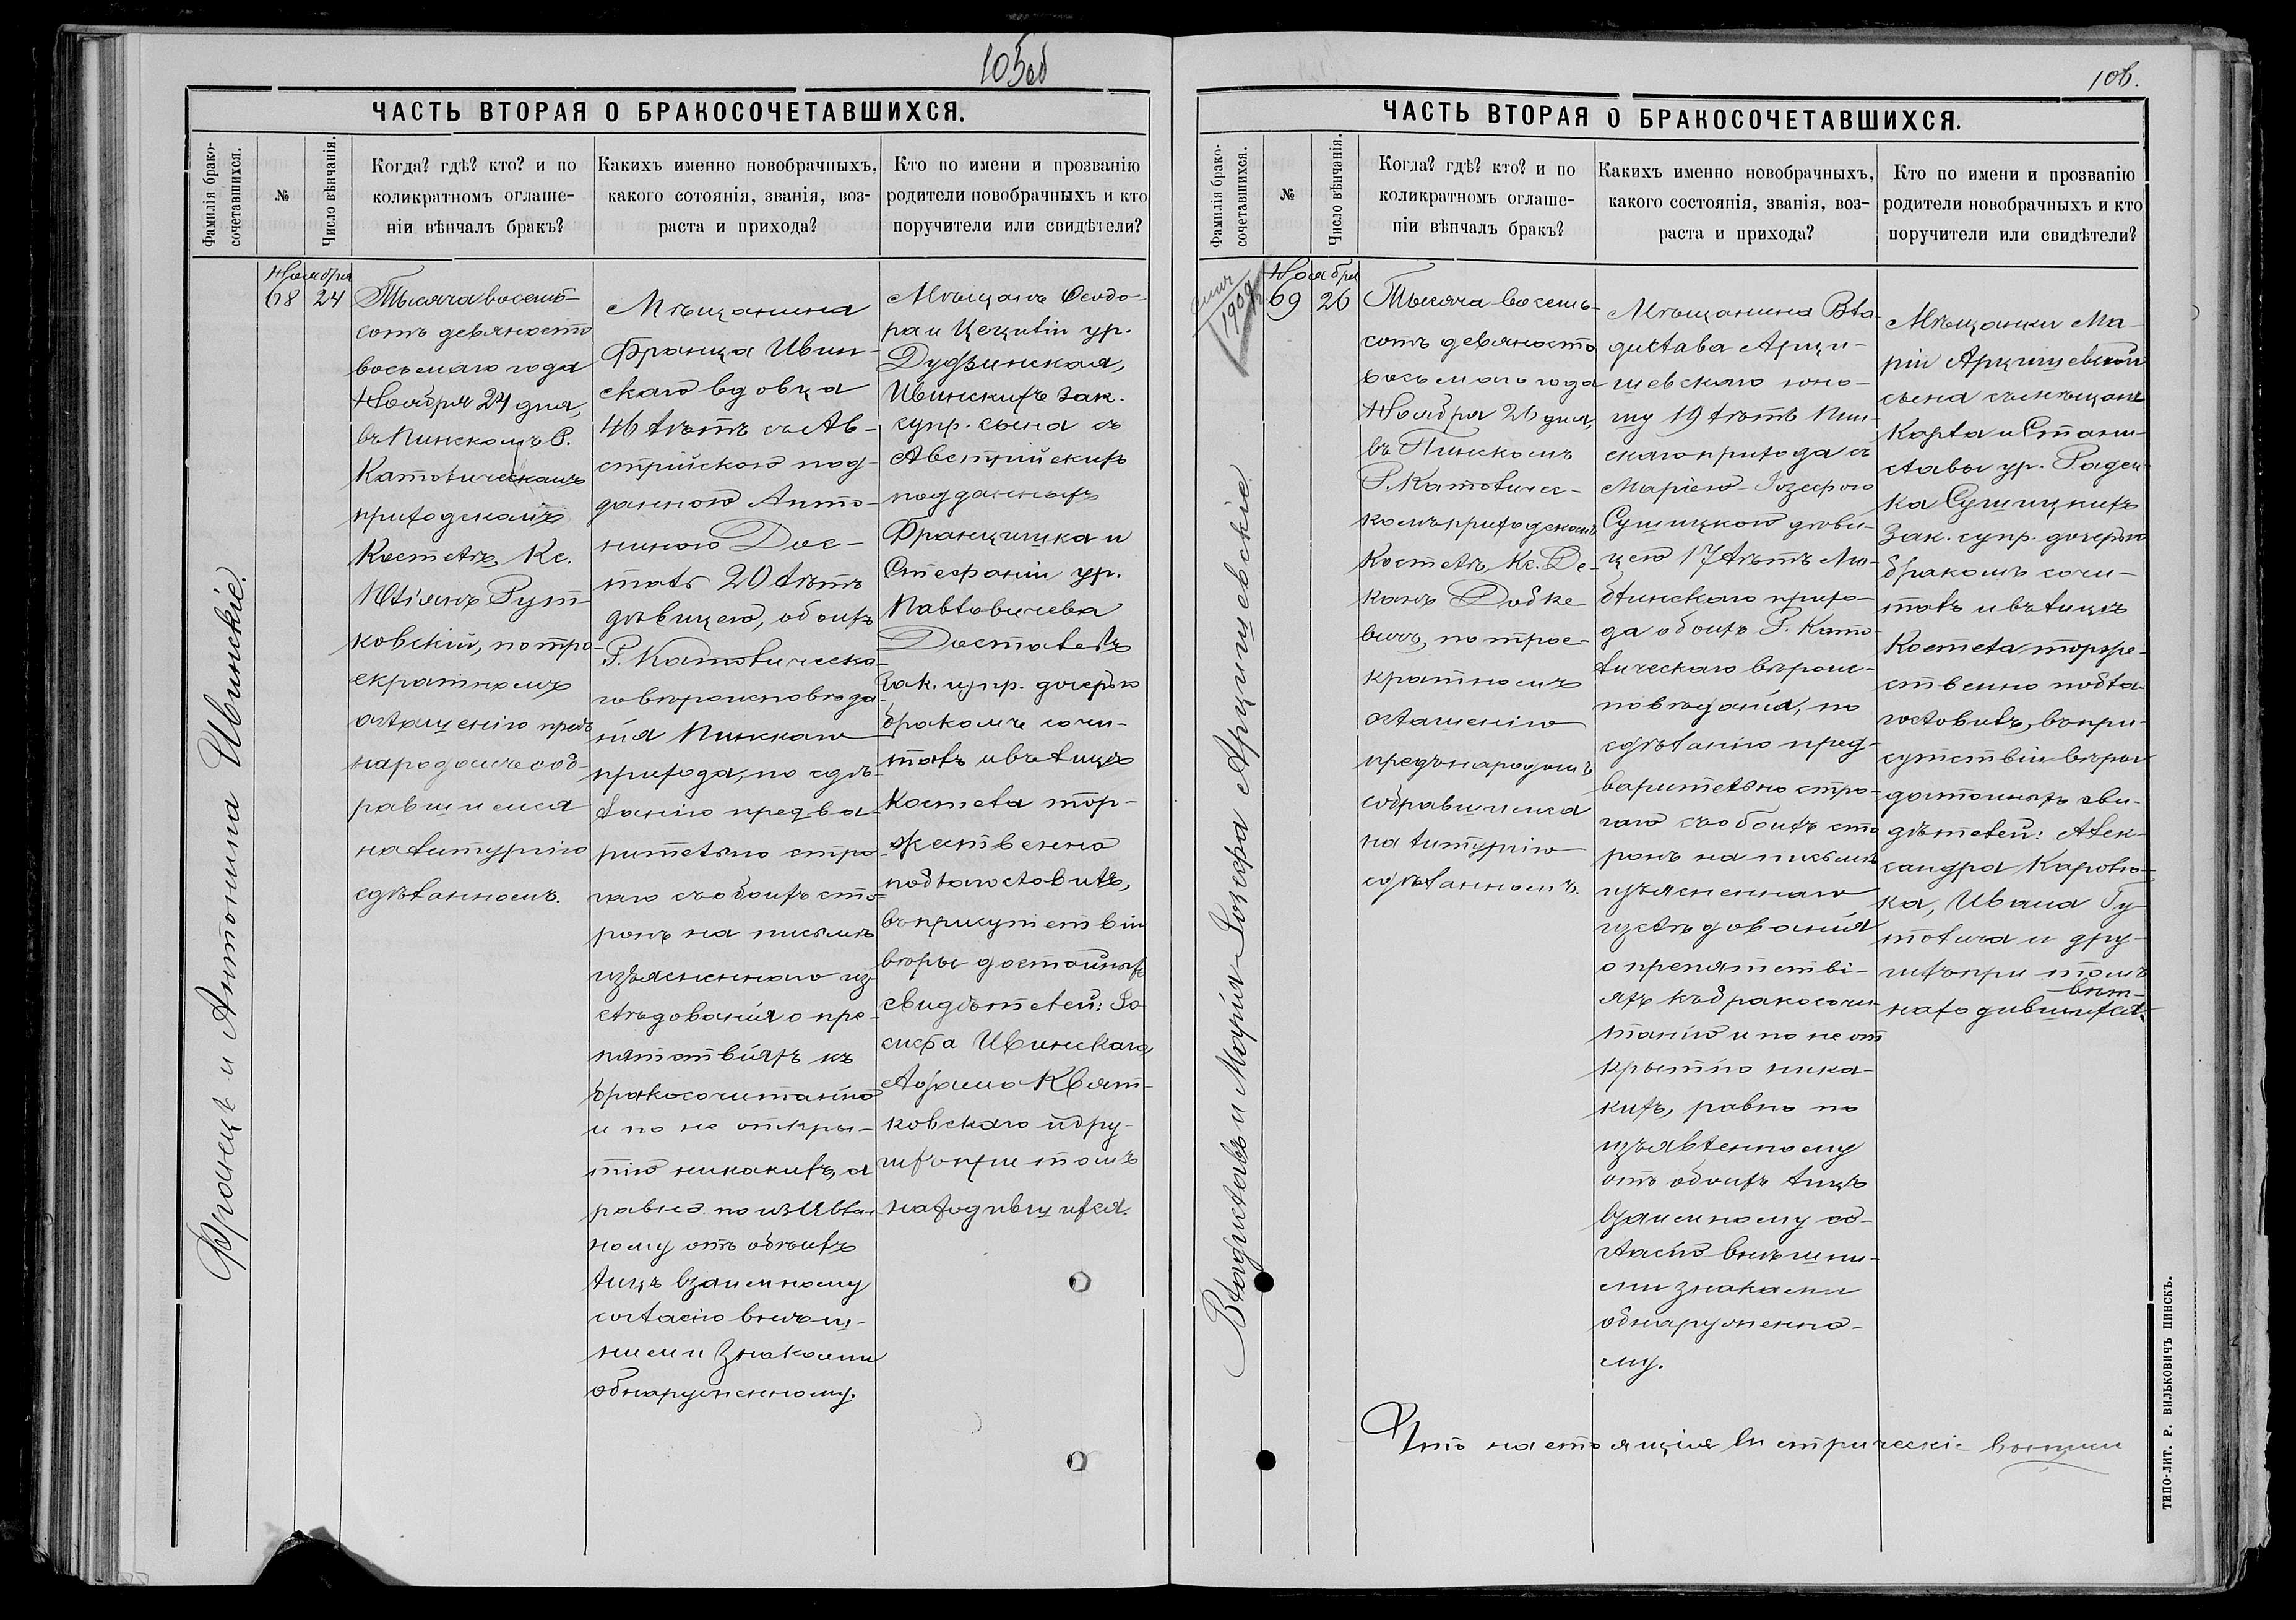 105об
ЧАСТЬ ВТОРАЯ О БРАКОСОЧЕТАВШИХСЯ.
Фамилія брако-
сочетавшихся.
№
Число вѣнчанія.
Когда? гдѣ? кто? и по
коликратномъ оглаше-
ніи вѣнчалъ бракъ?
Какихъ именно новобрачныхъ,
какого сотоянія, званія, воз-
раста и прихода?
Кто по имени и прозванію
родители новобрачныхъ и кто
поручители или свидѣтели?
Францъ и Антонина Ивинскіе.
Ноября
68 24
Тысяча восемь-
сотъ девяносто
восьмаго года
Ноября 24 дня,
въ Пинскомъ Р.
Католическомъ
приходскомъ
Костелѣ, Кс.
Юліянъ Рут-
ковскій, по тро-
екратномъ
оглашенію предъ
народомъ соб-
равшимся
на литургію
сдѣланномъ.
Мѣщанина
Франца Ивин-
скаго вдовца
46 лѣтъ съ Ав-
стрійскою под-
данною Анто-
ниною Дос-
таль 20 лѣтъ
дѣвицею, обоихъ
Р. Католическа-
го вѣроисповѣда-
нія Пинскаго
прихода, по сдѣ-
ланію предва-
рительно стро-
гаго съ обоихъ сто-
ронъ на письмѣ
изъясненнаго из-
слѣдованія о пре-
пятствіяхъ къ
бракосочитанію
и по не откры-
тію никакихъ, а
равно по изъявлен-
ному отъ обоихъ
лицъ взаимному
согласію внѣш-
ними знаками
обнаруженному.
Мѣщанъ Ѳеодо-
ра и Цециліи ур.
Дудзинская,
Ивинскихъ зак.
супр. сына съ
Австрійскихъ
подданныхъ
Францишка и
Стефаніи ур.
Павловичева
Досталевъ
Зак. супр. дочерью
бракомъ сочи-
талъ и въ лицѣ
Костела тор-
жественно
поблагословилъ,
въ присутствіи
вѣры достойныхъ
свидѣтелей: Іо-
сифа Ивинскаго,
Адама Квят-
ковскаго и дру-
гихъ при томъ
находившихся.
106.
ЧАСТЬ ВТОРАЯ О БРАКОСОЧЕТАВШИХСЯ.
Фамилія брако-
сочетавшихся.
№
Число вѣнчанія.
Когда? гдѣ? кто? и по
коликратномъ оглаше-
ніи вѣнчалъ бракъ?
Какихъ именно новобрачныхъ,
какого состоянія, званія, воз-
раста и прихода?
Кто по имени и прозванію
родители новобрачныхъ и кто
поручители или свидѣтели?
1909
Владиславъ и Марія-Іозефа Арцишевскіе.
Ноября
69 26
Тысяча восемь-
сотъ девяносто
восьмаго года
Ноября 26 дня,
въ Пинскомъ
Р. Католичес-
комъ приходскомъ
Костелѣ, Кс. Де-
канъ
по трое-
кратномъ
оглашенію
предъ народомъ
собравшимся
на литургію
сдѣланномъ.
Мѣщанина Вла-
дислава Арци-
шевскаго юно-
шу 19 лѣтъ Пин-
скаго прихода съ
Маріею-Іозефою
Сушицкою дѣви-
цею 17 лѣтъ Лю-
блинскаго прихо-
да обоихъ Р. Като-
лическаго вѣроис-
повѣданія, по
сдѣланію пред-
варительно стро-
гаго съ обоихъ сто
ронъ на письмѣ
изъясненнаго
изслѣдованія
о препятстві-
яхъ къ бракосочи-
танію и по не от
крытію ника-
кихъ, равно по
изъявленному
отъ обоихъ лицъ
взаимному со-
гласію внѣшни-
ми знаками
обнаруженно-
му.
Мѣщанки Ма-
ріи Арцишевской
сына съ мѣщанъ
Карла и Стани-
славы ур. Радец-
ка Сушицкихъ
Зак. супр. дочерью
бракомъ сочи-
талъ и въ лицѣ
Костела торже-
ственно побла-
гословилъ, въ при-
сутствіи вѣры
достойныхъ сви-
дѣтелей: Алек-
сандра Каролю-
ка, Ивана Гу-
товича и дру-
гихъ при томъ
находившихся.
Что настоящія
ТИПО-ЛИТ. Р. ВИЛЬКОВИЧЪ ПИНСКЪ.